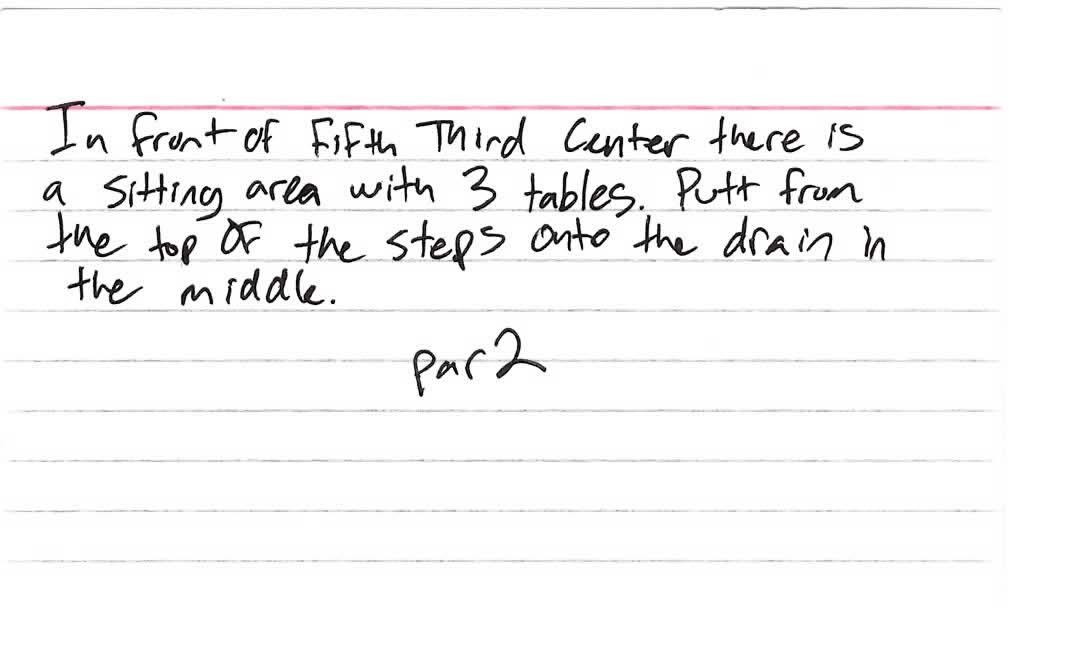 In front of Fifth Third Center there is
a sitting area with 3 tables. Putt from
the top of the steps onto the drain in
the middle.
par 2